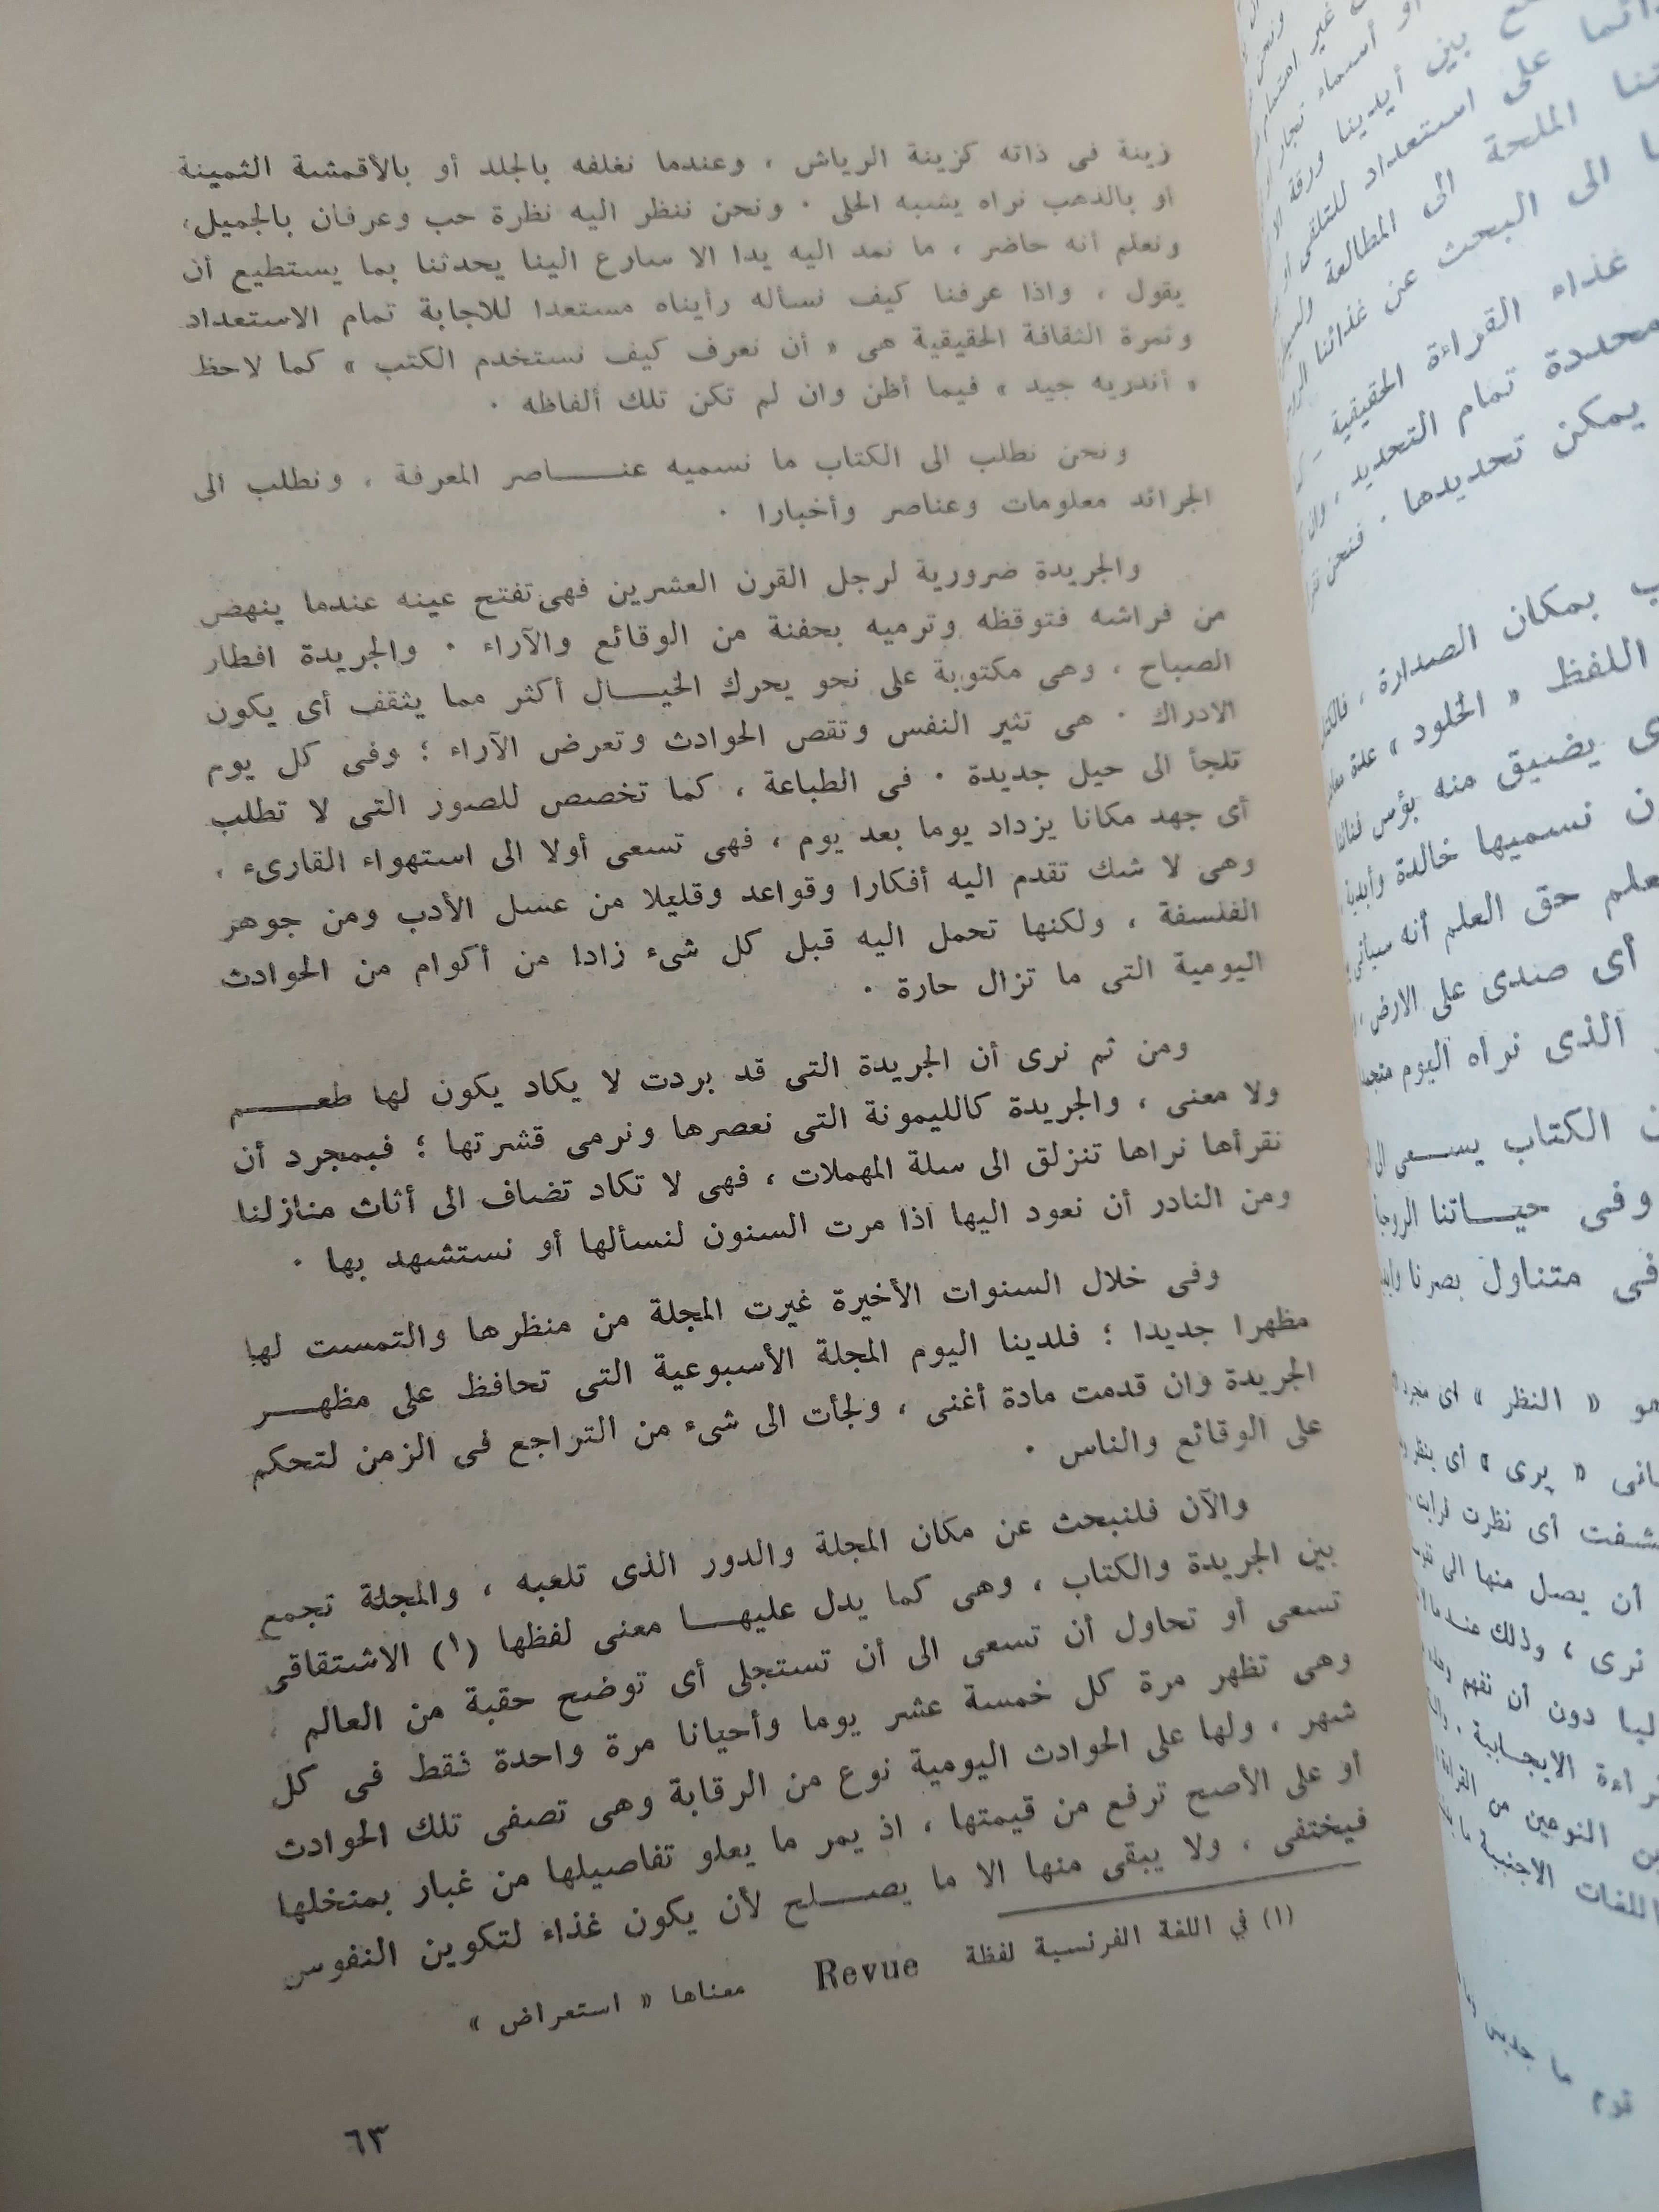 زينة فى ذاته كزينة الرياش ، وعندما نغلفه بالجلد أو بالأقمشة الثمينة
أو بالذهب نراه يشبه الحلى . ونحن ننظر اليه نظرة حب وعرفان بالجميل،
ونعلم أنه حاضر ، ما نمد اليه يدا الا سارع الينا يحدثنا بما يستطيع أن
يقول ، واذا عرفنا كيف نسأله رأيناه مستعدا للاجابة تمام الاستعداد
وثمرة الثقافة الحقيقية هى « أن نعرف كيف نستخدم الكتب » كما لاحظ
« أندريه جيد » فيما أظن وان لم تكن تلك ألفاظه .
ونحن نطلب الى الكتاب ما نسميه عنـــاصر المعرفة ، ونطلب الى
الجرائد معلومات وعناصر وأخبارا .
والجريدة ضرورية لرجل القرن العشرين فهى تفتح عينه عندما ينهض
من فراشه فتوقظه وترميه بحفنة من الوقائع والآراء . والجريدة افطار
الصباح ، وهى مكتوبة على نحو يحرك الخيـــال أكثر مما يثقف أى يكون
الادراك . هى تثير النفس وتقص الحوادث وتعرض الآراء ؛ وفى كل يوم
تلجأ الى حيل جديدة . فى الطباعة ، كما تخصص للصور التى لا تطلب
أى جهد مكانا يزداد يوما بعد يوم ، فهى تسعى أولا الى استهواء القارىء ،
وهى لا شك تقدم اليه أفكارا وقواعد وقليلا من عسل الأدب ومن جوهر
الفلسفة ، ولكنها تحمل اليه قبل كل شىء زادا من أكوام من الحوادث
اليومية التى ما تزال حارة .
ومن ثم نرى أن الجريدة التى قد بردت لا يكاد يكون لها طعـــم
ولا معنى ، والجريدة كالليمونة التى نعصرها ونرمى قشرتها ؛ فبمجرد أن
نقرأها نراها تنزلق الى سلة المهملات ، فهى لا تكاد تضاف الى أثاث منازلنا
ومن النادر أن نعود اليها اذا مرت السنون لنسألها أو نستشهد بها .
وفى خلال السنوات الأخيرة غيرت المجلة من منظرها والتمست لها
مظهرا جديدا ؛ فلدينا اليوم المجلة الأسبوعية التى تحافظ على مظهـــر
الجريدة وان قدمت مادة أغنى ، ولجأت الى شىء من التراجع فى الزمن لتحكم
على الوقائع والناس .
والآن فلنبحث عن مكان المجلة والدور الذى تلعبه ، والمجلة تجمع
بين الجريدة والكتاب ، وهى كما يدل عليهـــا معنى لفظها (١) الاشتقاقى
تسعى أو تحاول أن تسعى الى أن تستجلى أى توضح حقبة من العالم .
وهى تظهر مرة كل خمسة عشر يوما وأحيانا مرة واحدة فقط فى كل
شهر ، ولها على الحوادث اليومية نوع من الرقابة وهى تصفى تلك الحوادث
أو على الأصح ترفع من قيمتها ، اذ يمر ما يعلو تفاصيلها من غبار بمنخلها
فيختفى . ولا يبقى منها الا ما يصـــلح لأن يكون غذاء لتكوين النفوس
(١) في اللغة الفرنسية لفظة Revue معناها « استعراض »
٦٣
بين أيدينا ورقة
على استعداد للتلقى
الملحة الى المطالعة
الى البحث عن غذائنا
غذاء القراءة الحقيقية
محددة تمام التحديد
يمكن تحديدها . فنحن
بمكان الصدارة ،
اللفظ « الخلود » علة
يضيق منه بؤس
نسميها خالدة
حق العلم أنه
أى صدى على الارض
الذى نراه اليوم
الكتاب يســـعى
وفى حيـــاتنا
فى متناول بصرنا
« النظر » اى
« يرى » أى
أى نظرت
أن يصل منها الى
نرى ، وذلك
دون أن نفهم
الايجـابية .
النوعين من
اللغات الاجنبية